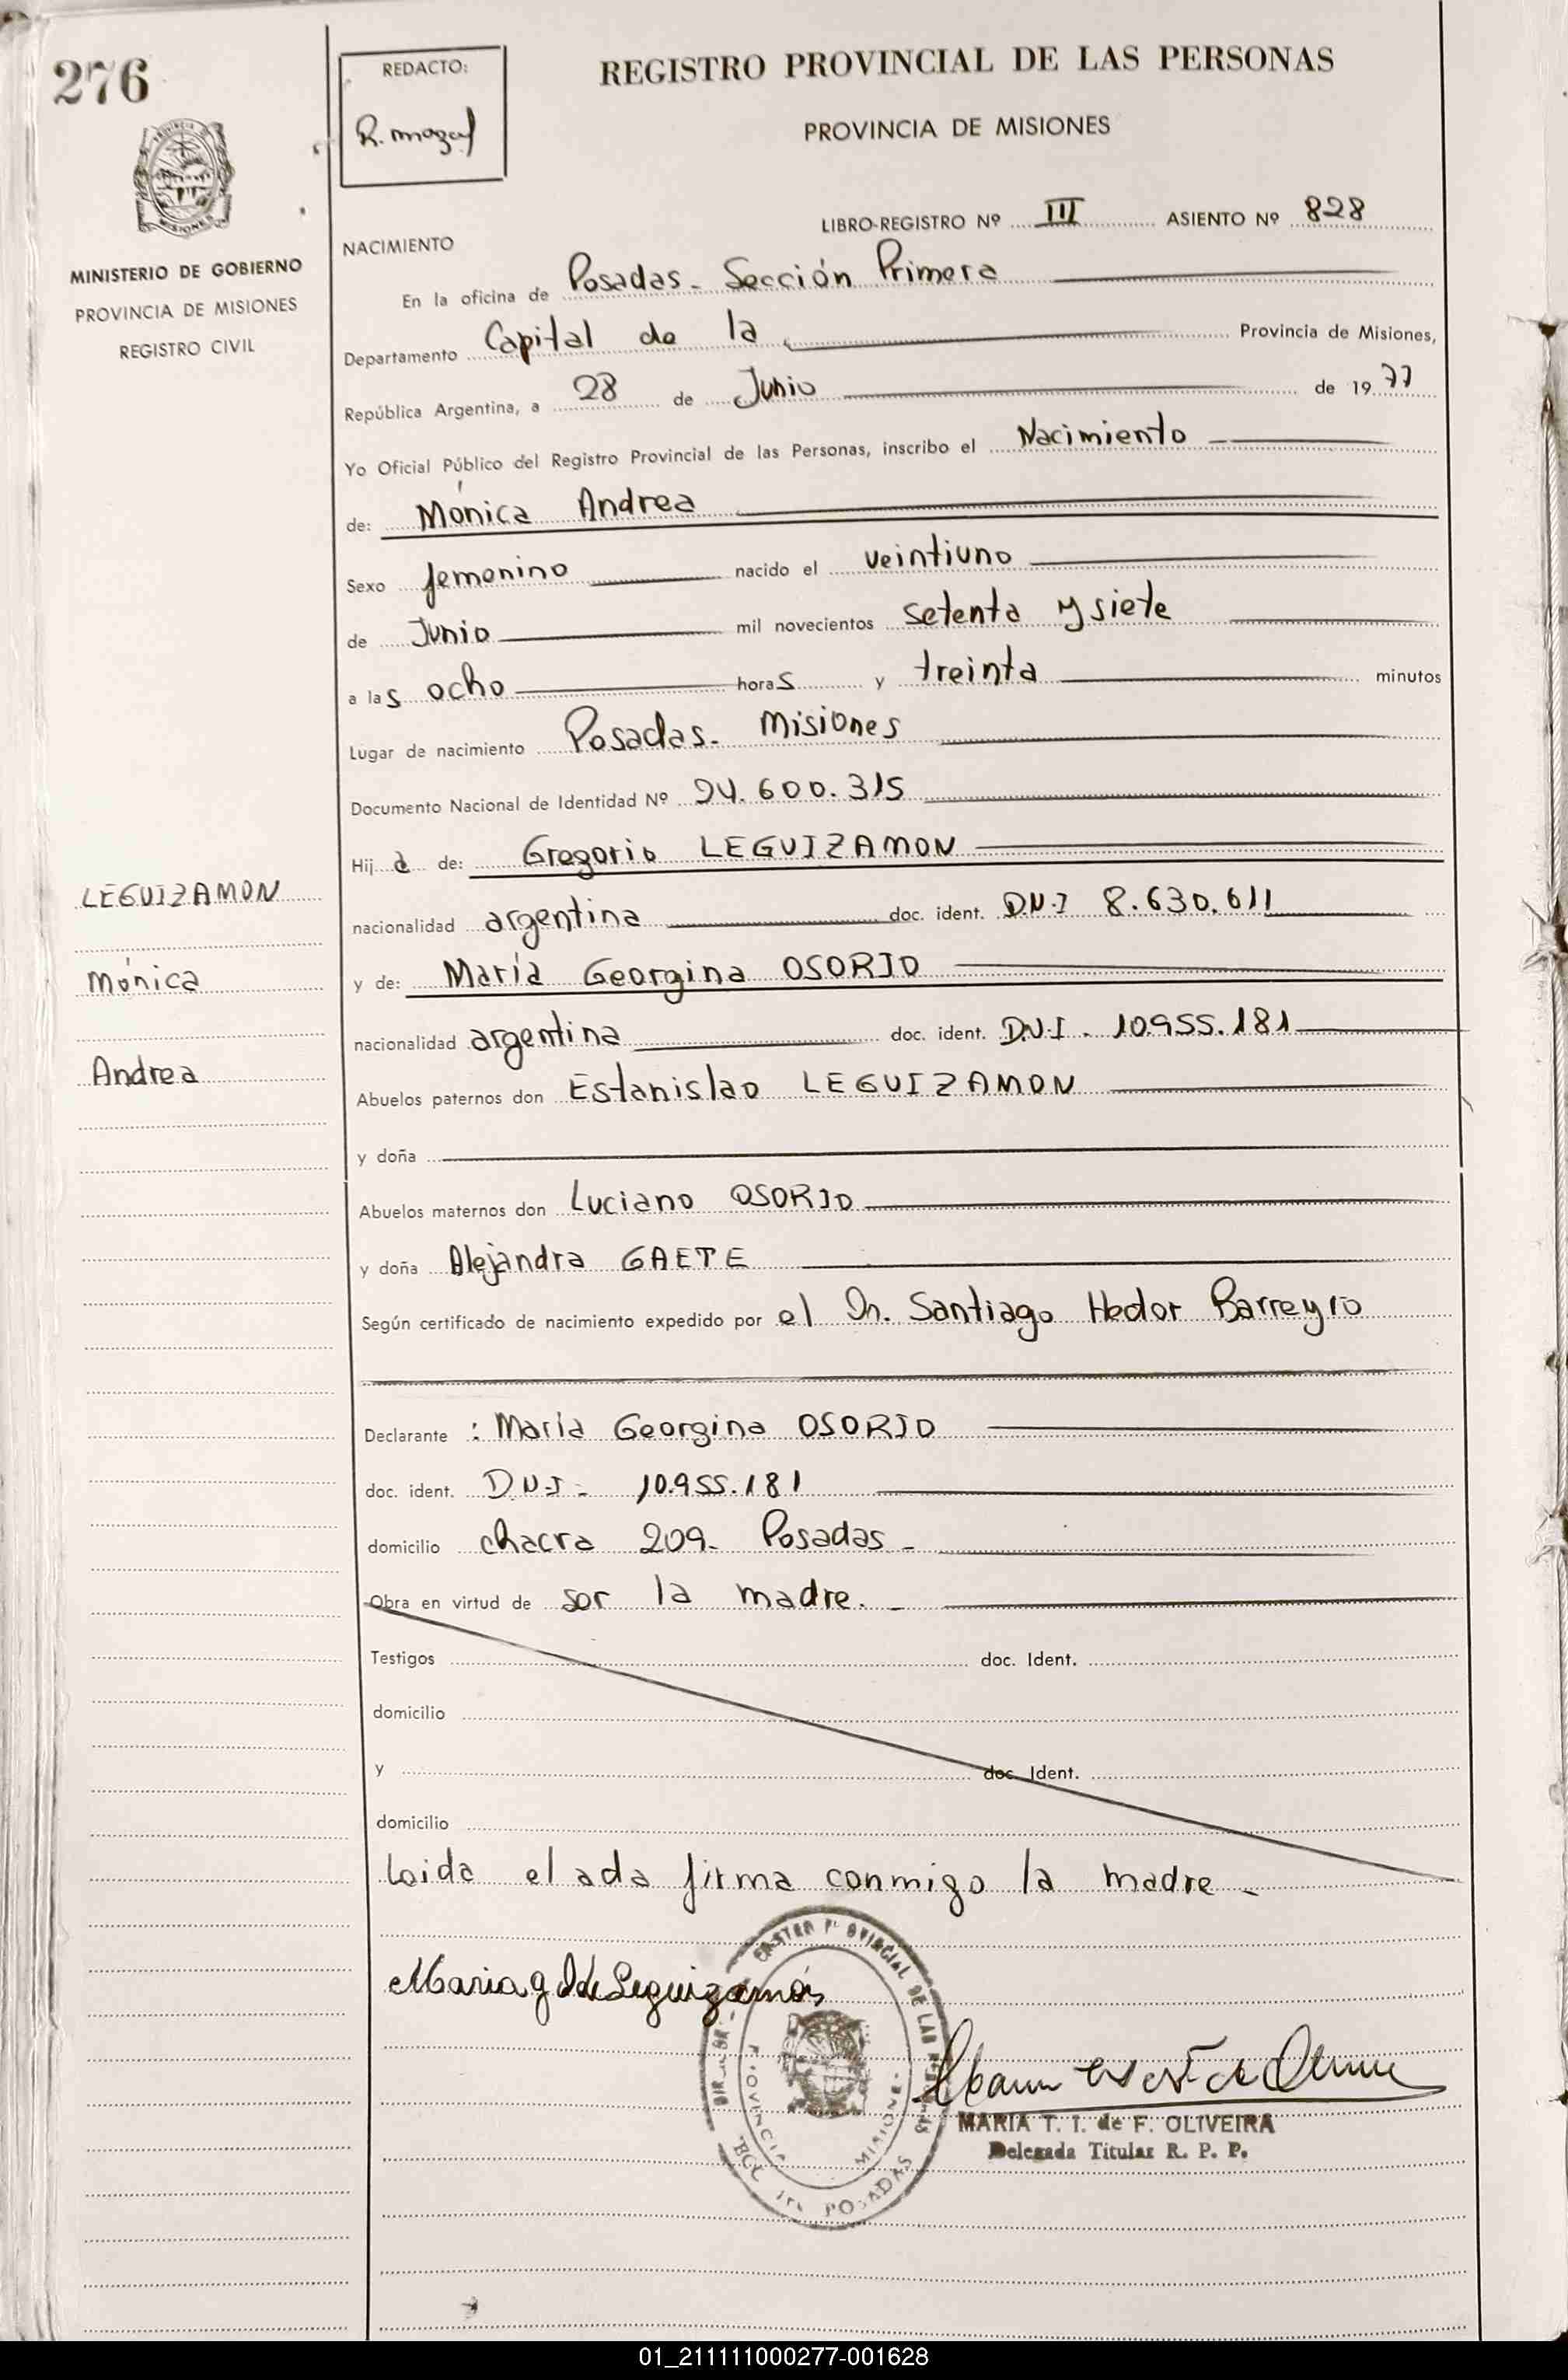 276
REDACTO:
REGISTRO PROVINCIAL DE LAS PERSONAS
PROVINCIA DE MISIONES
LIBRO-REGISTRO Nº III ASIENTO Nº 828
MINISTERIO DE GOBIERNO
PROVINCIA DE MISIONES
REGISTRO CIVIL
NACIMIENTO
En la oficina de Posadas - Sección Primera
Departamento Capital de la Provincia de Misiones,
República Argentina, a 28 de Junio de 1977
Yo Oficial Público del Registro Provincial de las Personas, inscribo el Nacimiento
de: Mónica Andrea
Sexo femenino nacido el veintiuno
de Junio mil novecientos setenta y siete
a las ocho horas y treinta minutos
Lugar de nacimiento Posadas - Misiones
Documento Nacional de Identidad Nº 24.600.315
Hija de: Gregorio LEGUIZAMON
LEGUIZAMON
nacionalidad argentina doc. ident. D.N.I 8.630.611
Mónica
y de: María Georgina OSORIO
nacionalidad argentina doc. ident. D.N.I. 10.955.181
Andrea
Abuelos paternos don Estanislao LEGUIZAMON
y doña
Abuelos maternos don Luciano OSORIO
y doña Alejandra GAETE
Según certificado de nacimiento expedido por el Dr. Santiago Hector Barreyro
Declarante : María Georgina OSORIO
doc. ident. D.N.I - 10.955.181
domicilio chacra 209 - Posadas -
Obra en virtud de ser la madre. -
Testigos doc. Ident.
domicilio
y doc. Ident.
domicilio
Loida el acta firma conmigo la madre -
Maria g O de Leguizamón
MARIA T. I. de F. OLIVEIRA
Delegada Titular R. P. P.
01_211111000277-001628